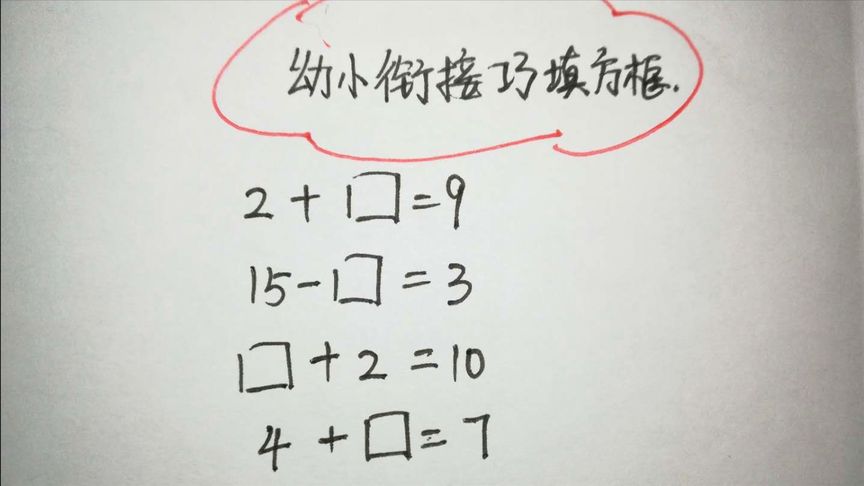 幼小衔接巧填方框.
2+□=9
15-□=3
□+2=10
4+□=7